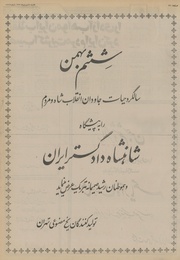 ششم بهمن
سالگرد حیات جاودان انقلاب شاه و مردم
را به پیشگاه
شاهنشاه دادگستر ایران
و هموطنان رشید صمیمانه تبریک عرض مینماید
تولید کنندگان یخ مصنوعی تهران